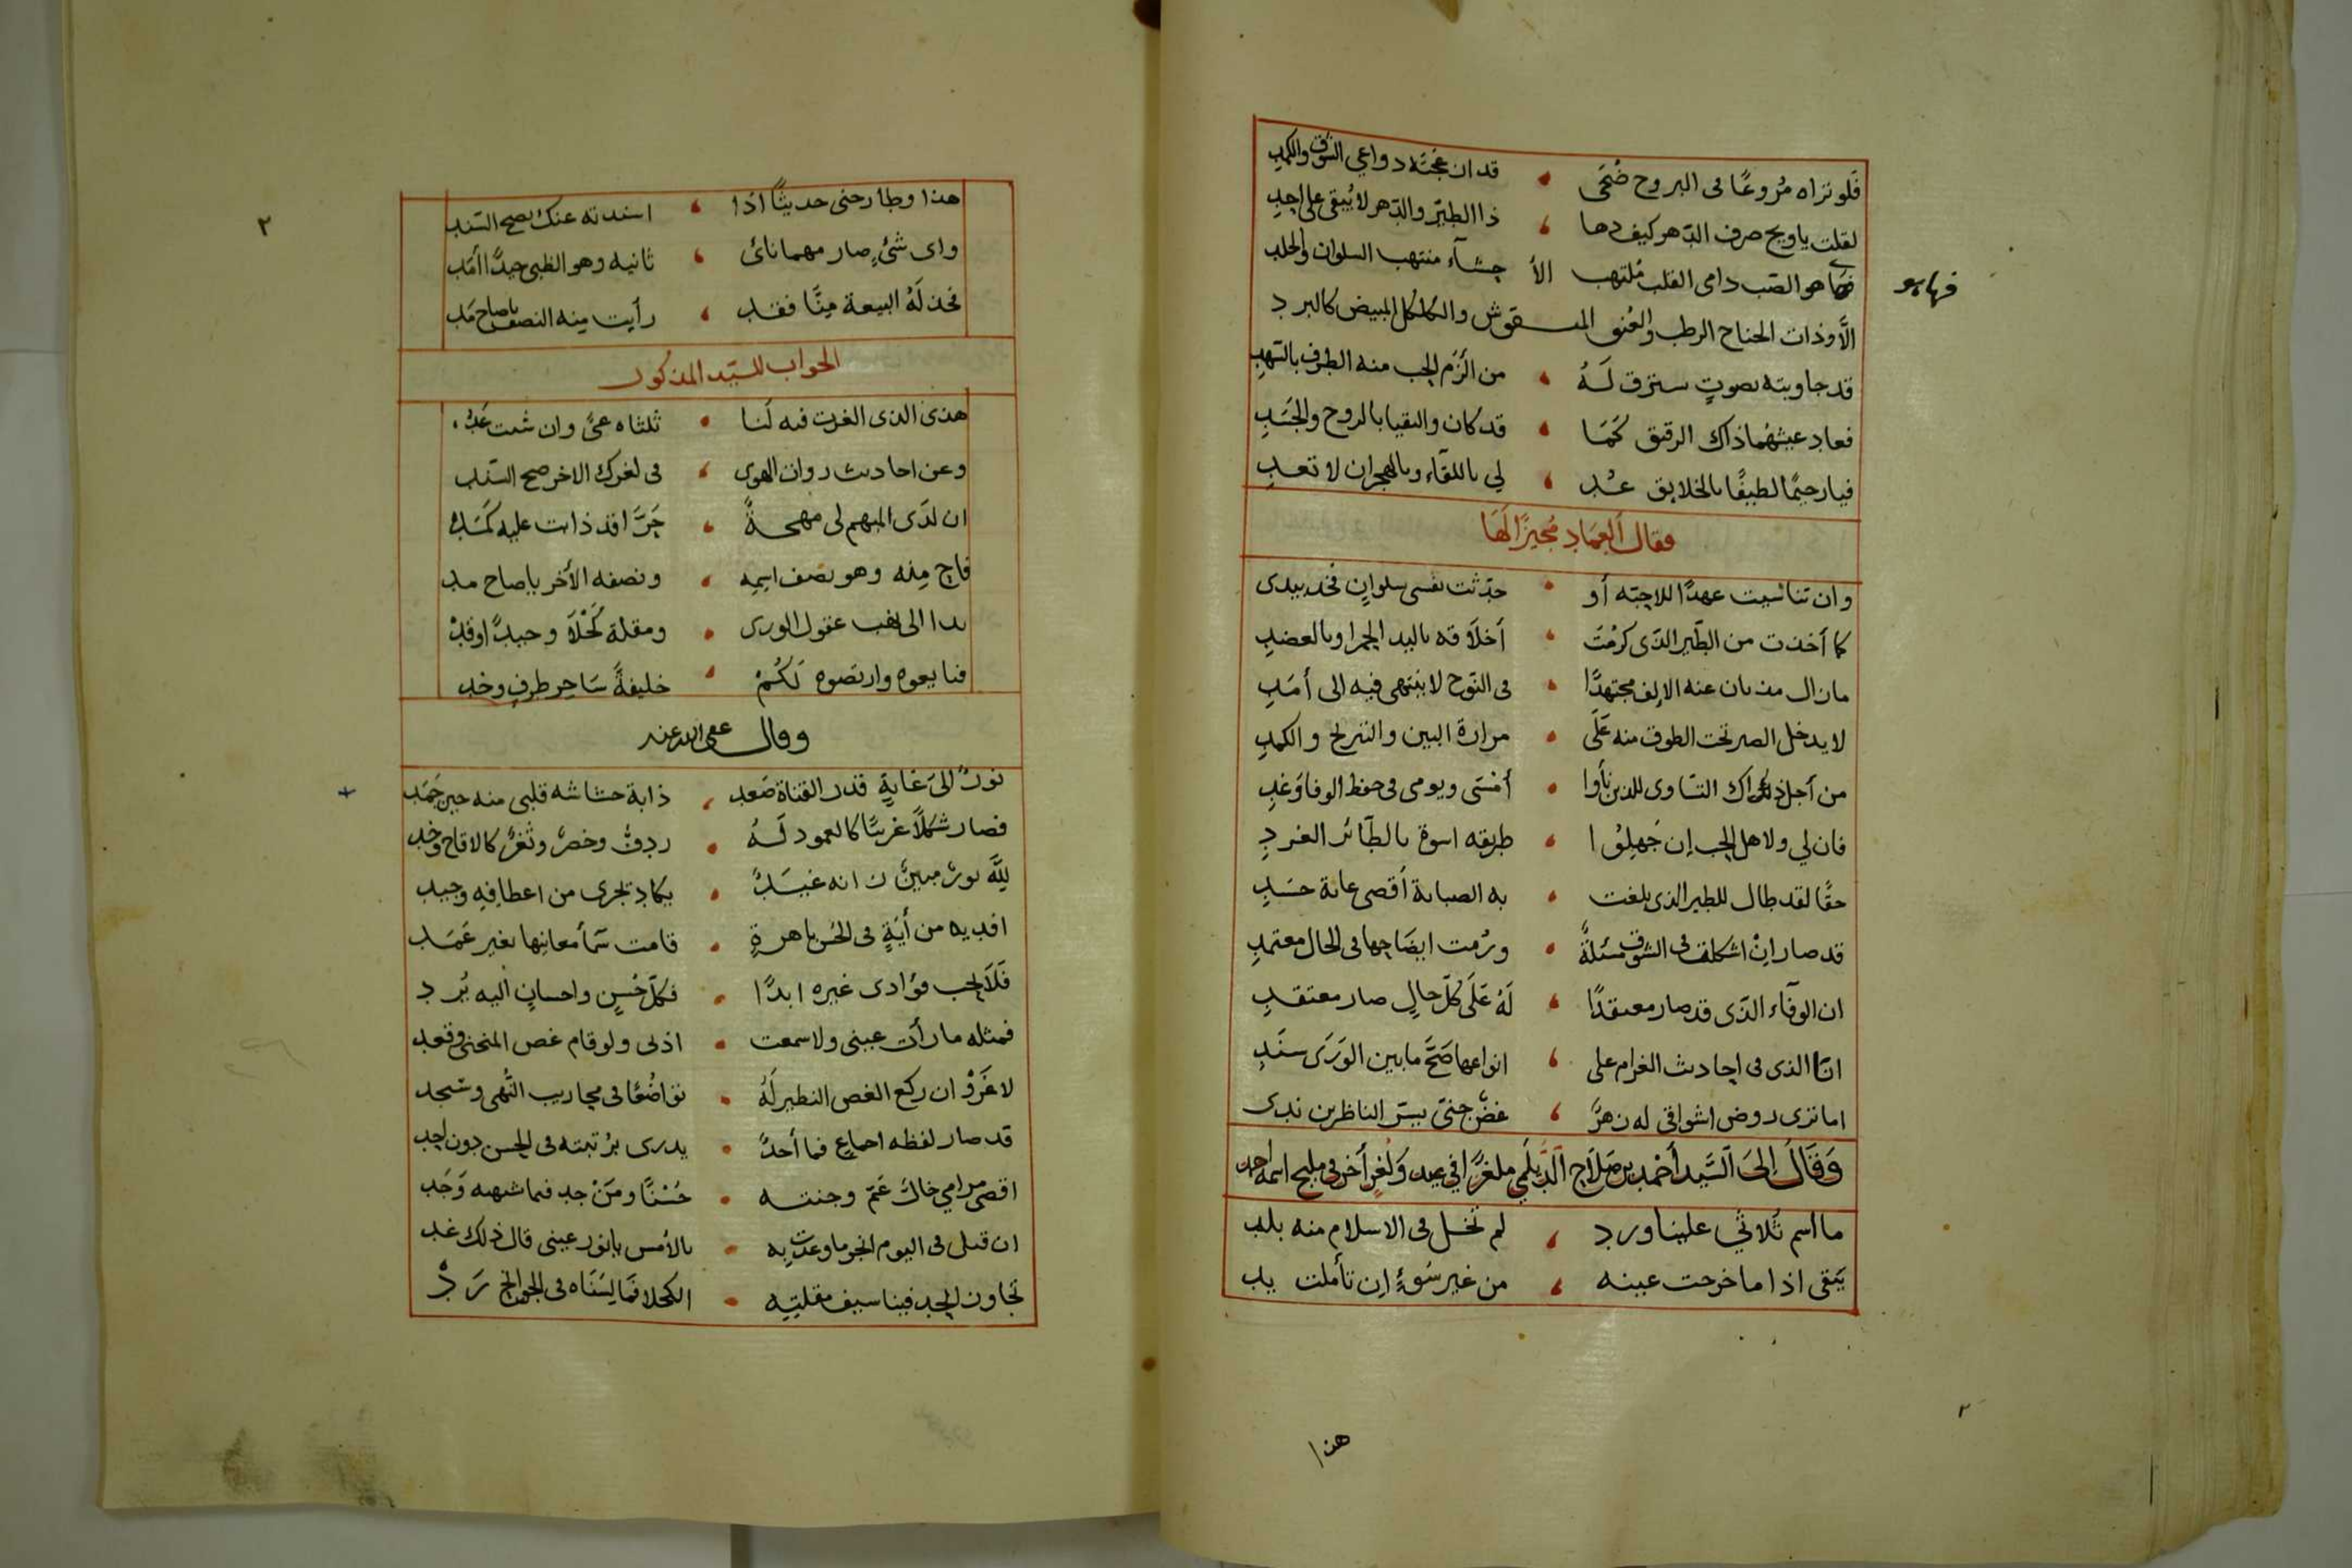 فَلو تراه مُروعًا فى البروح ضُحَى ، قد ان عجته دواعي الشوق والكمدِ
لقلت ياويح صرف الدّهر كيف دها ، ذا الطير والدّهر لا يُبقى على احدِ
فها هو الصّب دامى القلب مُلتهب الأ حشآء منتهب السلوان والجلد
فها هو
الاّ وذات الجناح الرطب والعُنق المنـقوش والكلكل المبيض كالبرد
قد جاوبته بصوتٍ سترق لَهُ ، من الزَم الحب منه الطرف بالسّهدِ
فعاد عيشهُما ذاك الرقيق كَمَا ، قد كان والتقيا بالروح والجَسَدِ
فيارحيمًا لطيفًا بالخلايق عُد ، لي باللقآء وبالهجران لا تعدِ
فقال العماد مُجيزًا لهَا
وان تناسيت عهدًا للاحبّه أو ، حدّثت نفسى بسلوانٍ فخذ بيدى
كما أخذت من الطَير الذّى كرمَت ، أخلاَقه باليد الحمرا وبالعضدِ
مازال مذ بان عنه الإلف مجتهدًا ، فى النّوح لا ينتهى فيه الى أمَدِ
لا يدخل الصبر تحت الطوق منه عَلَى ، مرارة البين والتبريح والكمدِ
من أجل ذلك اك التسّاوى للذين نأوا ، أمْسَى ويومى فى حفظ الوفا وَغدِ
فان لي ولاهل الحب إن جَهِلُوا ، طريقه اسوة بالطّآئر الغردِ
حقًا لقد طال للطير الذى بلغت ، به الصبابة أقصى غاية حسَدِ
قد صار انْ اشكلت فى الشوق مسئلةٌ ، ورُمت ايضَاحها فى الحال معتمدِ
ان الوفآء الذّى قد صار معتقدًا ، لَهُ عَلَى كلّ حالٍ صار معتقدِ
انّا الذى فى احاديث الغرام على ، انواعها صَحّ ما بين الوَرَى سنَدِ
اما ترى روض اشواقى له زهرٌ ، غضٌّ جنىّ يسرّ الناظرين ندى
وَقَالَ إلىَ السَّيد أحْمد بن صَلاَح الدَّيلَمي ملغزًا في عيد وَلُغزٍ أخر في مليح اسمه احمد
ما اسم ثلاثي علينا ورد ، لم تخل فى الاسلام منه بلد
يَبقى اذا ما خرجت عينه ، من غير سُوءٍ ان تأملت يد
هذا
٢
هذا وطارحنى حديثًا اذا ، اسندته عنك يصح السّند
واى شئٍ صار مهما نائ ، ثانيه وهو الظبى جيدًا أَمَد
فخذ لَهُ البيعة مِنّا فقد ، رأيت مِنه النصف ياصاح مَد
الجواب للسيّد المذكور
هذى الذى الغزت فيه لنا ، ثلثاه عىٌّ وان شئت عَد
وعن احاديث روان الهوى ، فى لغزك الاخر صح السّند
ان لَدَى المبهم لى مهجةً ، حَرَّا قد ذابت عليه كمَد
فاح مِنه وهو نصف اسمِه ، ونصفه الأخر ياصاح مد
بدا الى نهب عقول الورى ، ومقلة كَحْلاَ وجيدٌ وقدْ
فبايعوه وارتضوه لكُمْ ، خليفةً سَاحر طرفٍ وخد
وقال عفى الله عنه
نورٌ الىَ غايةٍ قدر القناة صَعد ، ذابة حشاشه قلبى منه حين جَمَد
فصار شكلاً غريبًا كالعمود لَهُ ، ردفٌ وخصرٌ وثغرٌ كالاقاح وخد
لِلّه نورٌ مبينٌ زانه غيَدٌ ، يكاد تجرى من اعطافِهِ وجيد
افديه من أيَةٍ فى الحُسن باهرةٍ ، قامت سَمآ معانيها بغير عَمَد
فَلاَ يحب فؤادى غيره ابدًا ، فكلّ حُسنٍ واحسانٍ اليه يُرد
فمثله ما رأت عينى ولا سمعت ، اذنى ولو قام غصن المنحنى وقعد
لا غَرْو ان ركع الغصن النظير لَهُ ، تواضُعًا فى محاريب النُّهى وسَجد
قد صار لفظه اجماع فما أحدٌ ، يدرى برُتبته فى الحسن دون احد
اقصى مرامي خالٌ عَمّ وجنته ، حُسْنًا ومَنْ جد فيما شهيه وَجَد
ان قيل فى اليوم انجز ما وعدت به ، بالأمس يا نور عينى قال ذلك غد
تجاوز الحد فينا سيف مقلتِهِ ، الكحلا فمَا لِسَنَاه فى الجوانح رَدْ